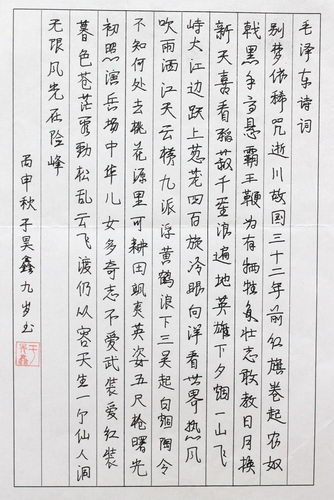 毛泽东诗词
别梦依稀咒逝川故国三十二年前红旗卷起农奴
戟黑手高悬霸王鞭为有牺牲多壮志敢教日月换
新天喜看稻菽千重浪遍地英雄下夕烟一山飞
峙大江边跃上葱茏四百旋冷眼向洋看世界热风
吹雨洒江天云横九派浮黄鹤浪下三吴起白烟陶令
不知何处去桃花源里可耕田飒爽英姿五尺枪曙光
初照演兵场中华儿女多奇志不爱武装爱红装
暮色苍茫看劲松乱云飞渡仍从容天生一个仙人洞
无限风光在险峰
丙申秋于昊鑫九岁书